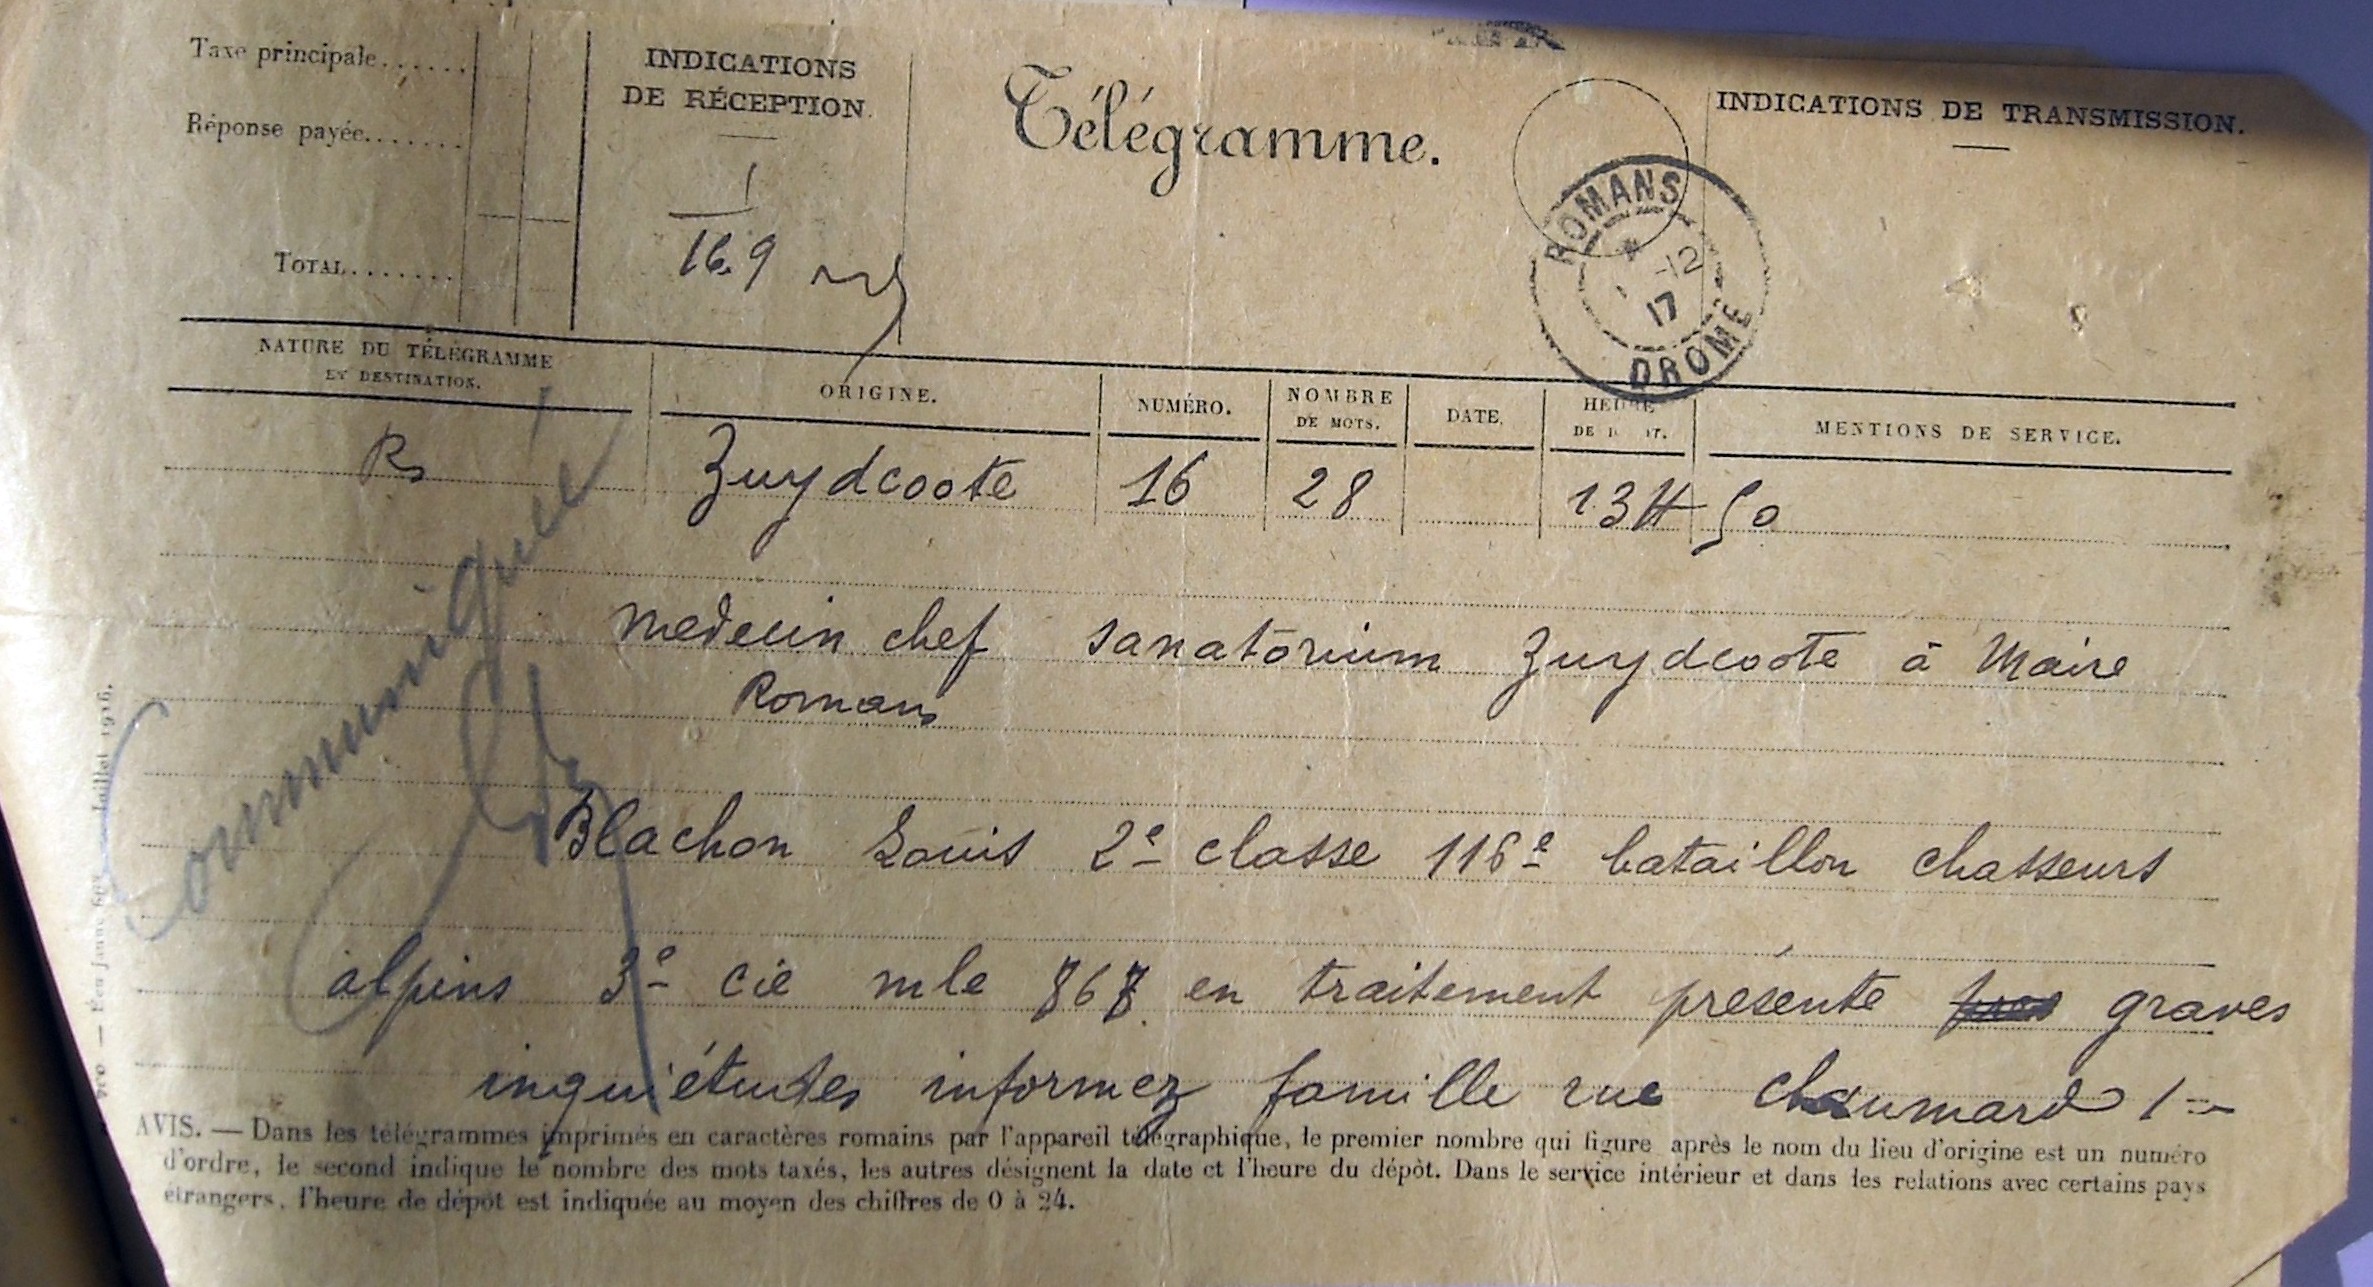 Taxe principale.......
Réponse payée.......
TOTAL.......
INDICATIONS
DE RÉCEPTION.
1
16.9
Télégramme.
INDICATIONS DE TRANSMISSION.
ROMANS
-12
17
DROME
NATURE DU TÉLÉGRAMME
ET DESTINATION.
ORIGINE.
NUMÉRO.
NOMBRE
DE MOTS.
DATE.
HEURE
MENTIONS DE SERVICE.
Rs
Zuydcoote
16
28
13H50
Communiquée
Medecin chef sanatorium Zuydcoote à Maire
Romans
Blachon Louis 2e classe 116e bataillon chasseurs
alpins 3e cie mle 868 en traitement présente graves
inquiétudes informez famille rue Chaumard 1=
Juillet 1916.
AVIS. — Dans les télégrammes imprimés en caractères romains par l'appareil télégraphique, le premier nombre qui figure après le nom du lieu d'origine est un numéro
d'ordre, le second indique le nombre des mots taxés, les autres désignent la date et l'heure du dépôt. Dans le service intérieur et dans les relations avec certains pays
étrangers, l'heure de dépôt est indiquée au moyen des chiffres de 0 à 24.